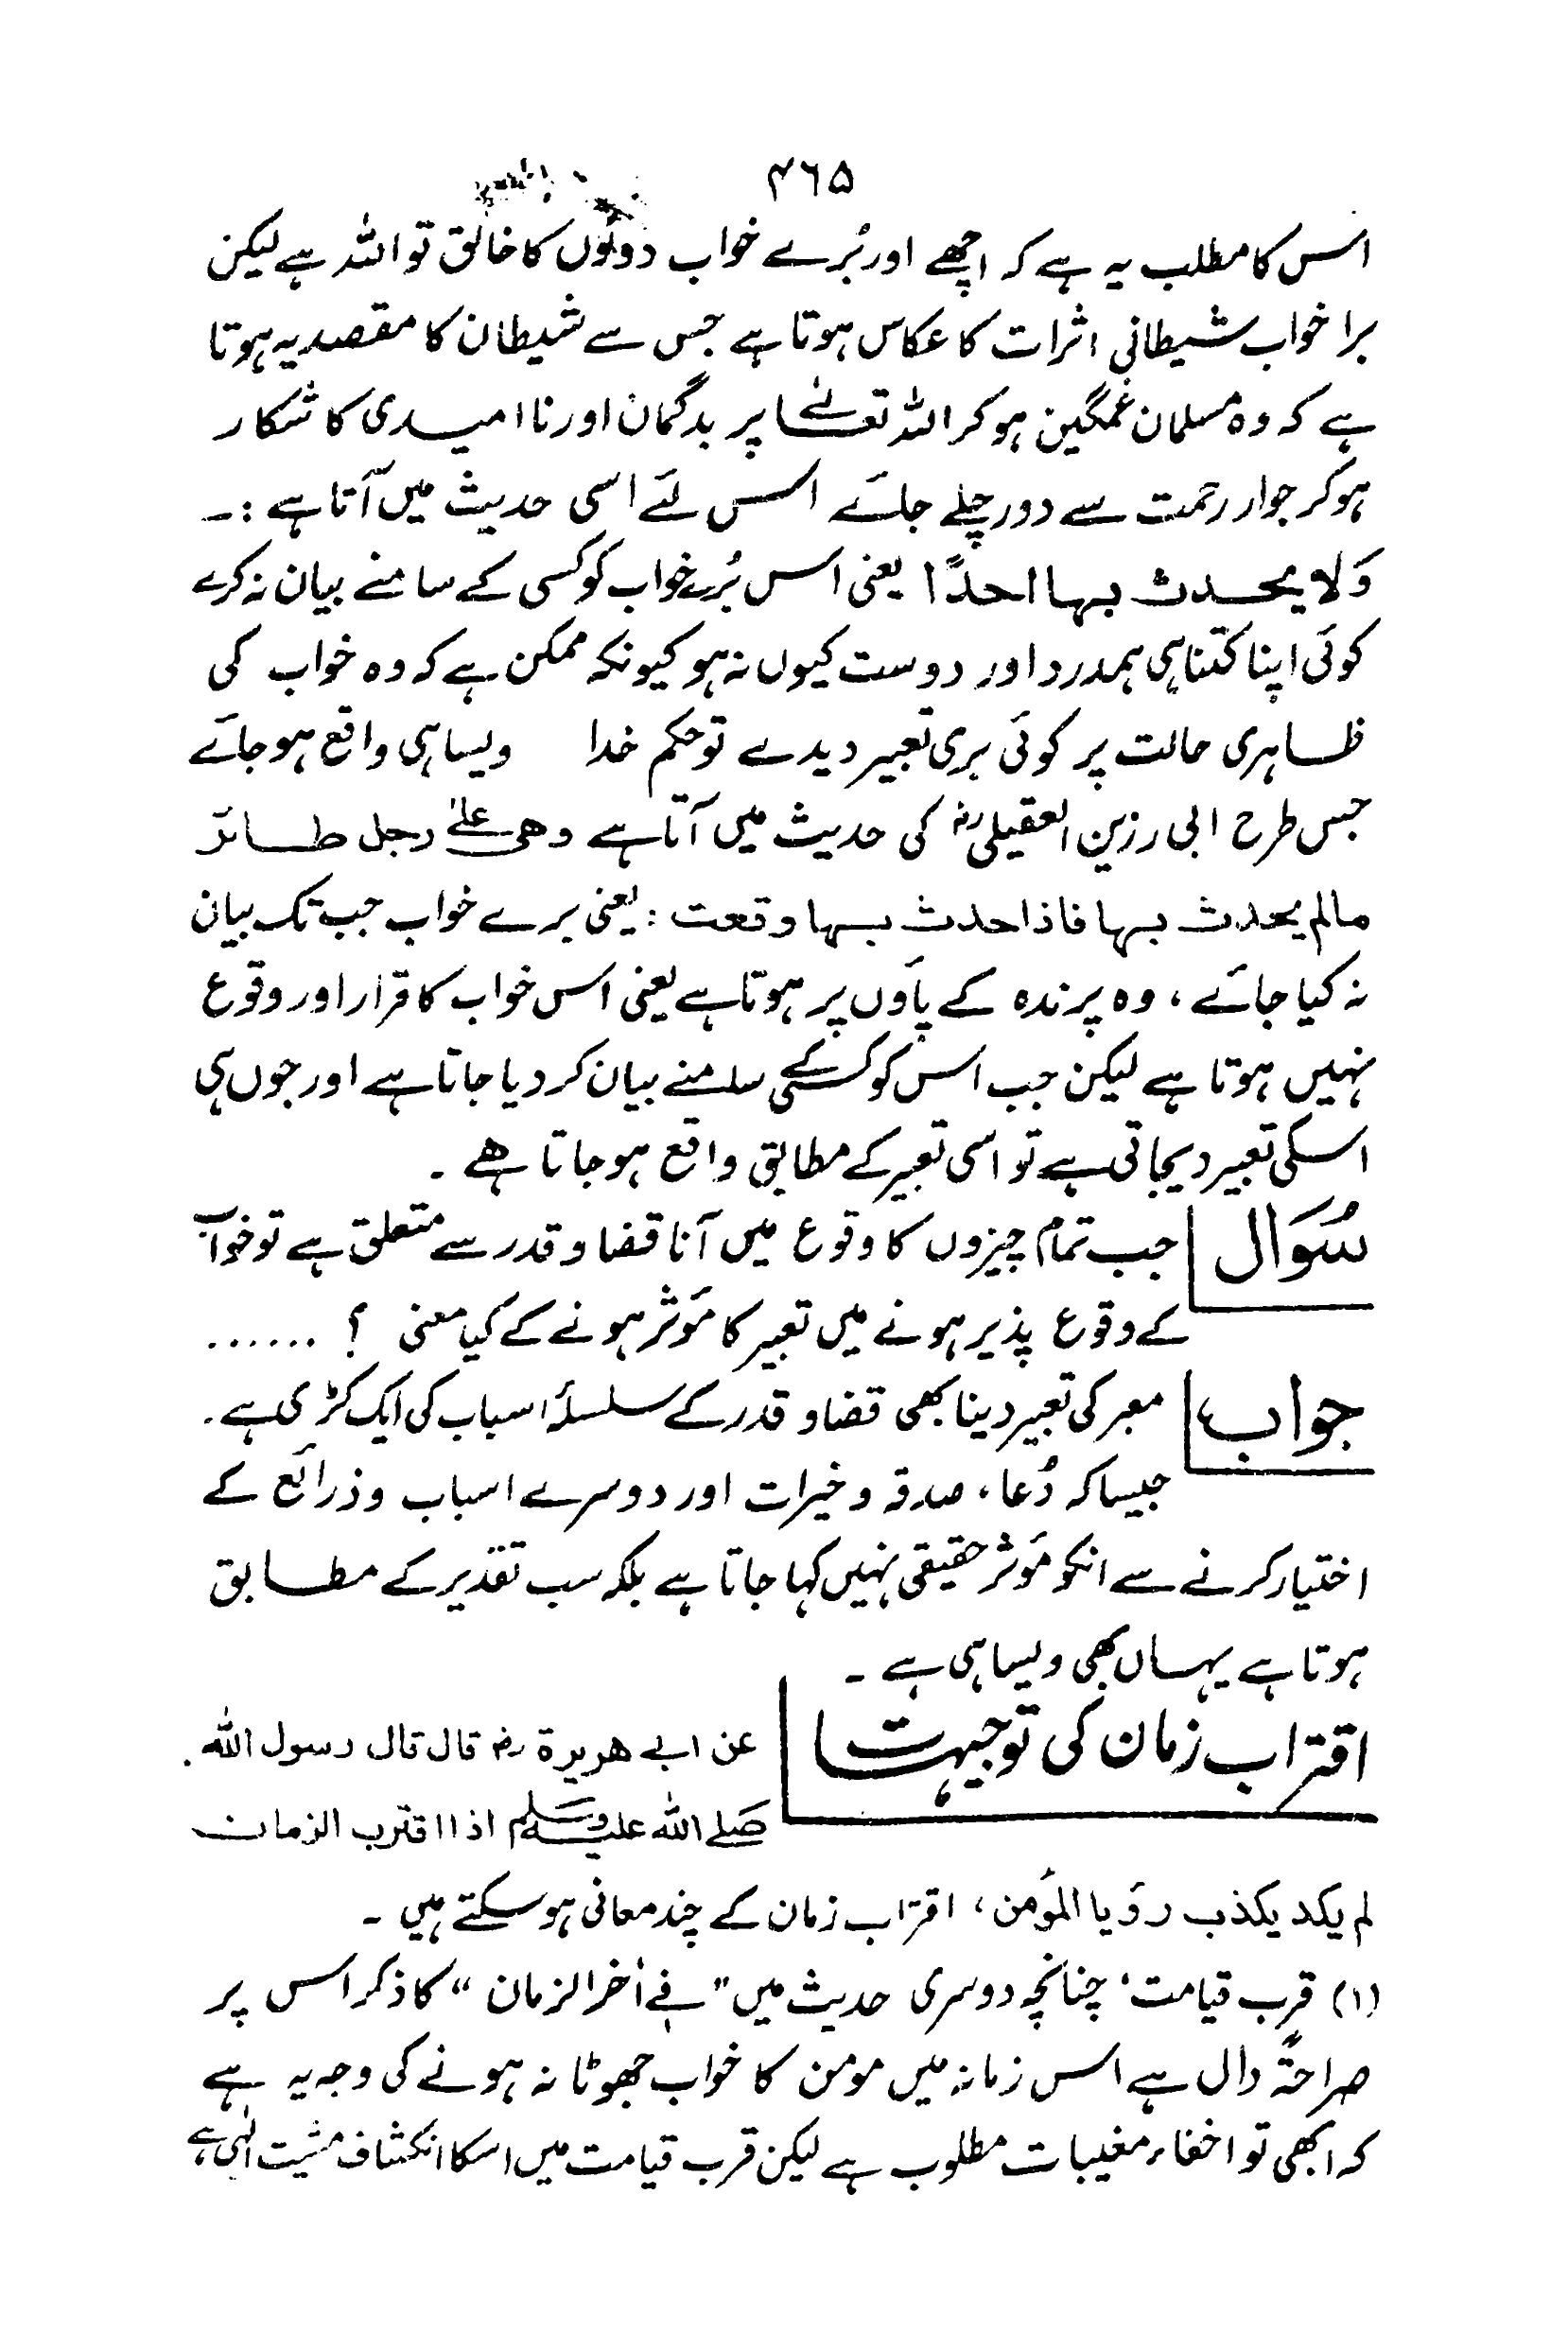 ۴۶۵
اس کا مطلب یہ ہے کہ اچھے اور بُرے خواب دونوں کا خالق تو اللہ ہے لیکن
برا خواب شیطانی اثرات کا عکاس ہوتا ہے جس سے شیطان کا مقصد یہ ہوتا
ہے کہ وہ مسلمان غمگین ہو کر اللہ تعالےٰ پر بدگمان اور نا امیدی کا شکار
ہو کر جوار رحمت سے دور چلے جائے اس لئے اسی حدیث میں آتا ہے :۔
وَلا یحدث بہا احدًا یعنی اس بُرے خواب کو کسی کے سامنے بیان نہ کرے
کوئی اپنا کتنا ہی ہمدرد اور دوست کیوں نہ ہو کیونکہ ممکن ہے کہ وہ خواب کی
ظاہری حالت پر کوئی بری تعبیر دیدے تو حکم خدا ویسا ہی واقع ہو جائے
جس طرح ابی رزین العقیلی رضہ کی حدیث میں آتا ہے وھی علےٰ رجل طائر
مالم یحدث بہا فاذا حدث بہا وقعت : یعنی برے خواب جب تک بیان
نہ کیا جائے ، وہ پرندہ کے پاؤں پر ہوتا ہے یعنی اس خواب کا قرار اور وقوع
نہیں ہوتا ہے لیکن جب اس کو کسی کے سامنے بیان کر دیا جاتا ہے اور جوں ہی
اسکی تعبیر دیجاتی ہے تو اسی تعبیر کے مطابق واقع ہو جاتا ھے ۔
سُوَال جب تمام چیزوں کا وقوع میں آنا قضا و قدر سے متعلق ہے تو خواب
کے وقوع پذیر ہونے میں تعبیر کا مؤثر ہونے کے کیا معنی ؟ ......
جواب معبر کی تعبیر دینا بھی قضا و قدر کے سلسلۂ اسباب کی ایک کڑی ہے ۔
جیسا کہ دُعا ، صدقہ و خیرات اور دوسرے اسباب و ذرائع کے
اختیار کرنے سے انکو مؤثر حقیقی نہیں کہا جاتا ہے بلکہ سب تقدیر کے مطابق
ہوتا ہے یہاں بھی ویسا ہی ہے ۔
اقتراب زمان کی توجیہات عن ابی ھریرۃ رضہ قال قال رسول اللہ
صَلے اللہ علیہ وسَلم اذا اقترب الزمان
لم یکد یکذب رؤیا المؤمن ، اقتراب زمان کے چند معانی ہو سکتے ہیں ۔
(۱) قرب قیامت ، چنانچہ دوسری حدیث میں "فے اٰخر الزمان" کا ذکر اس پر
صراحۃً دال ہے اس زمانہ میں مومن کا خواب جھوٹا نہ ہونے کی وجہ یہ ہے
کہ ابھی تو اخفاء مغیبات مطلوب ہے لیکن قرب قیامت میں اسکا انکشاف مشیت الٰہی ہے